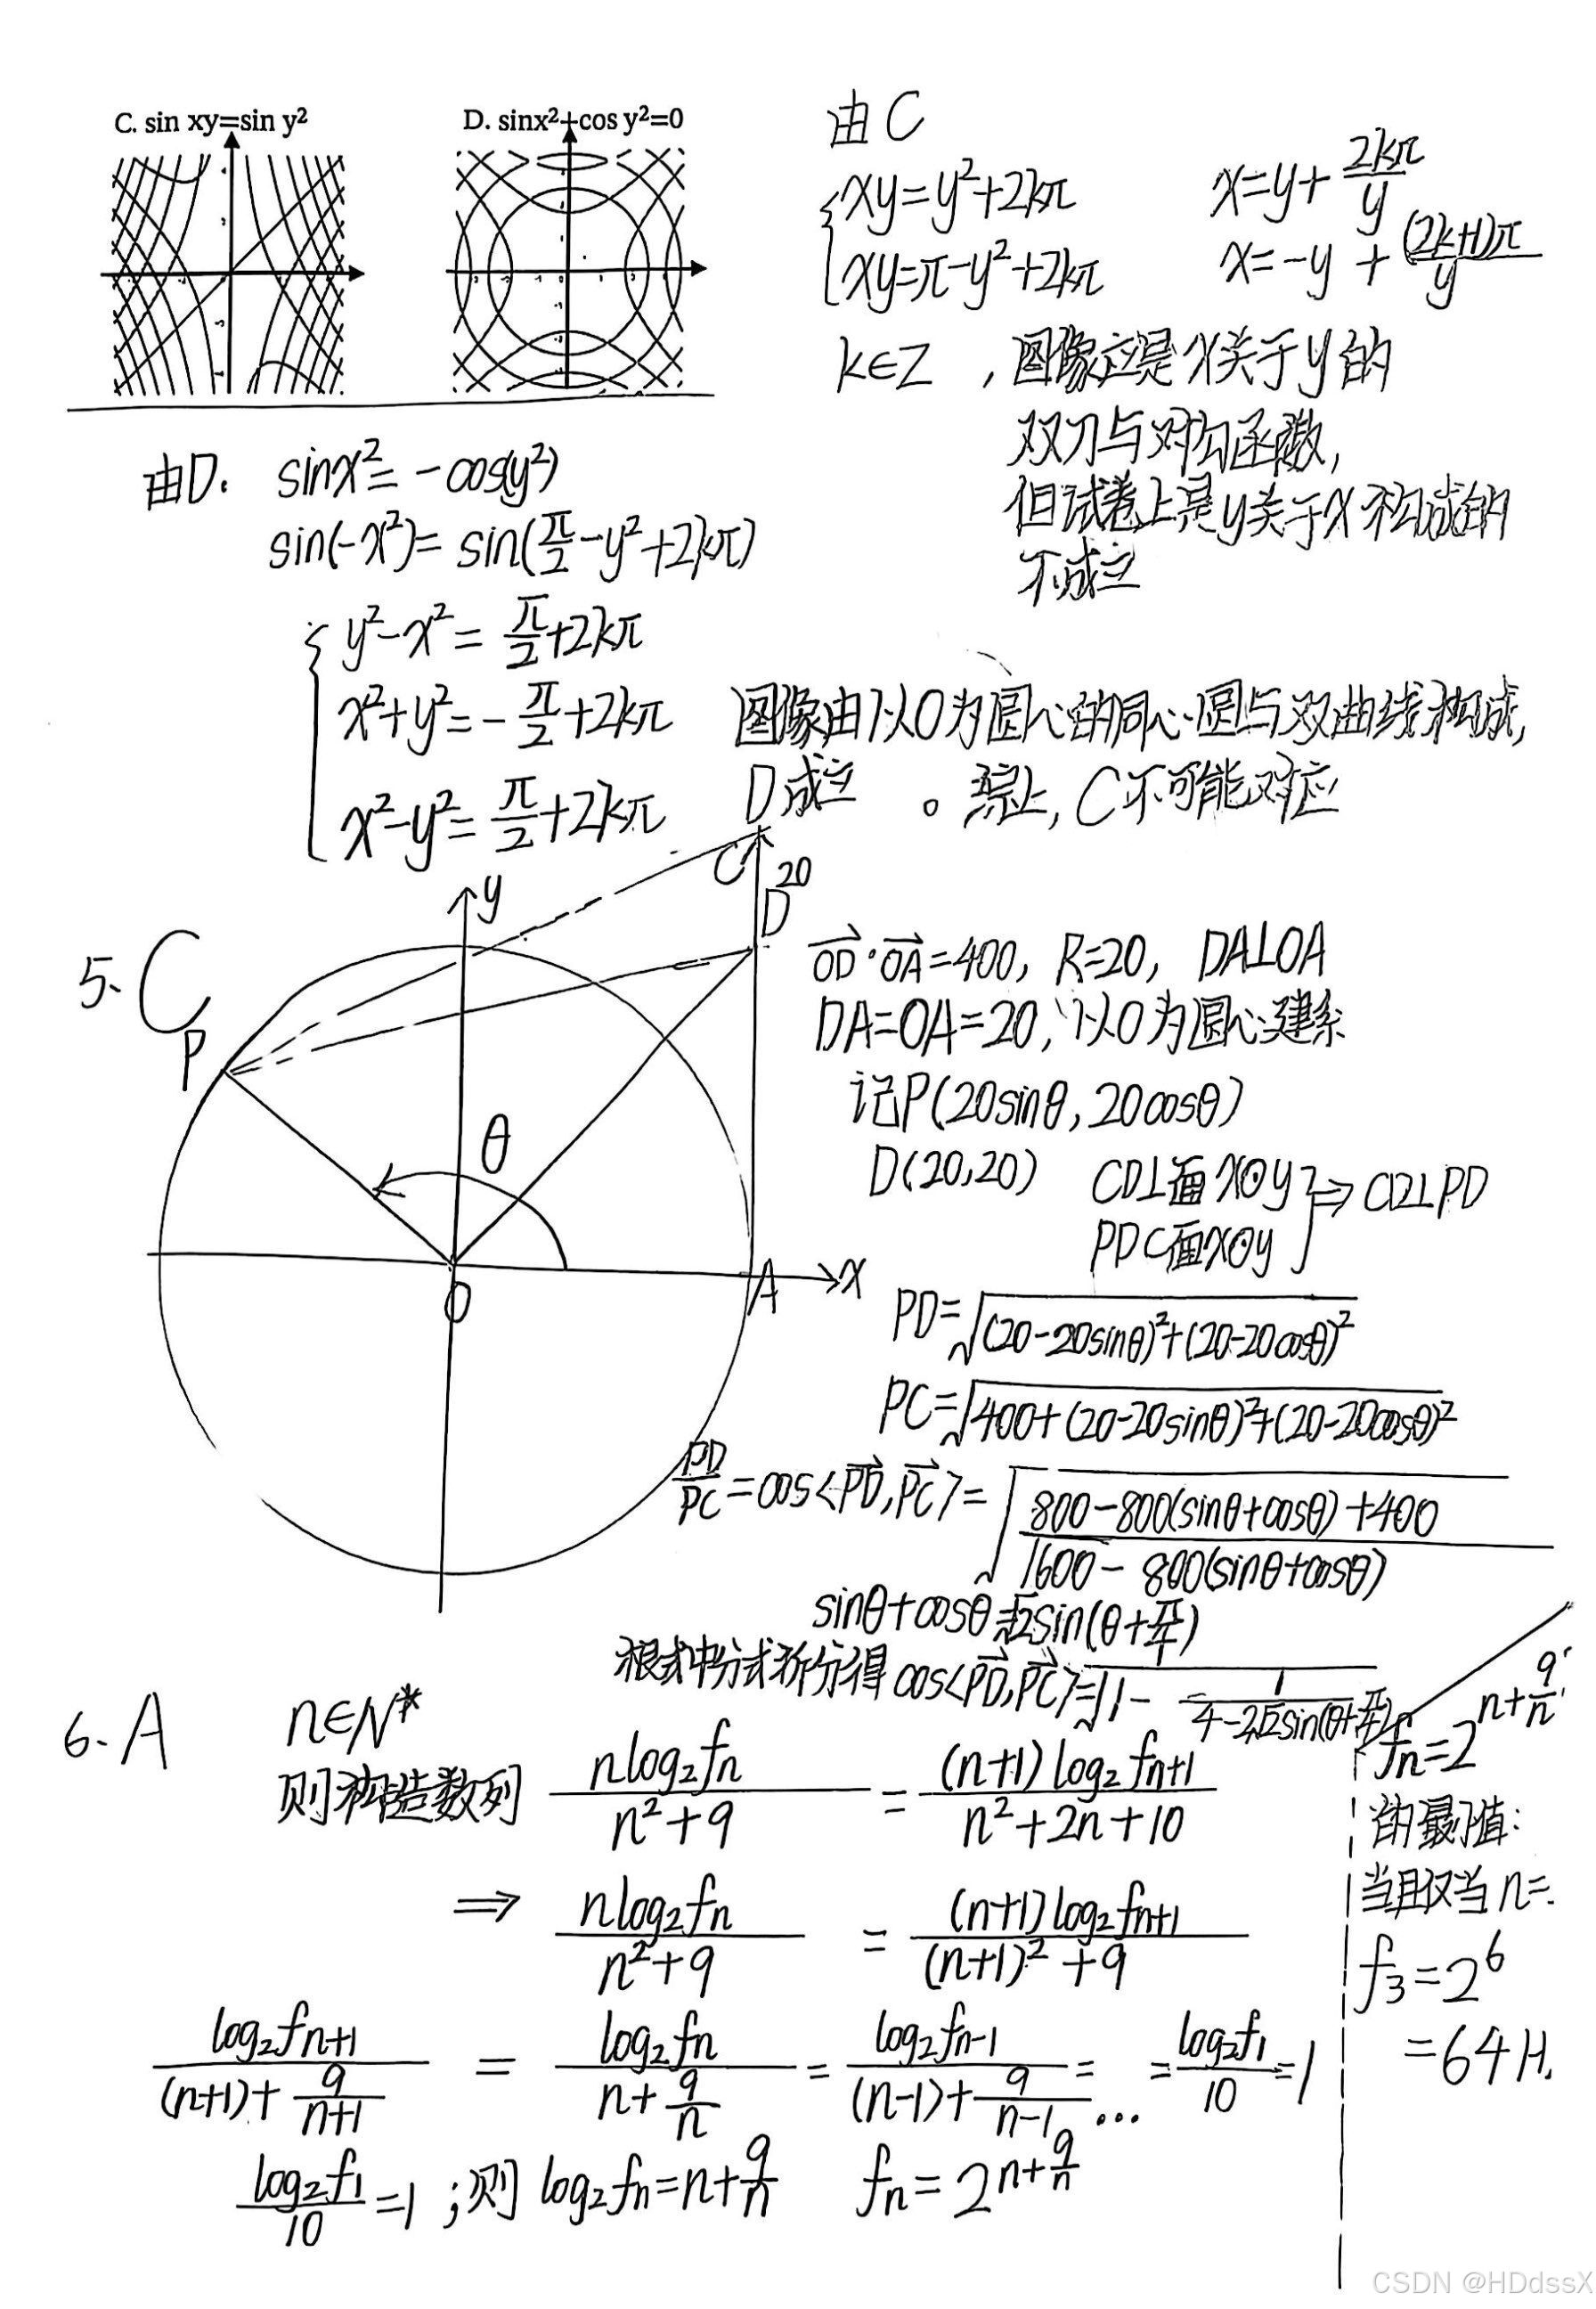 C. sin xy=sin y²
D. sinx²+cos y²=0
由C
{xy=y²+2kπ
xy=π-y²+2kπ
x=y+2kπ/y
x=-y+(2k+1)π/y
k∈Z ，图像应是x关于y的
双刀与对勾函数,
但试卷上是y关于x构成的
不成立
由D. sinx²=-cos(y²)
sin(-x²)=sin(π/2-y²+2kπ)
{y²-x²=π/2+2kπ
x²+y²=-π/2+2kπ
x²-y²=π/2+2kπ
图像由以O为圆心的同心圆与双曲线构成,
D成立 。综上, C不可能对应
5. C
y
C
20
D
P
θ
O
A
x
OD·OA=400, R=20, DA⊥OA
DA=OA=20, 以O为圆心建系
记P(20sinθ, 20cosθ)
D(20,20) CD⊥面xOy
PD⊂面xOy } ⇒ CD⊥PD
PD=√((20-20sinθ)²+(20-20cosθ)²)
PC=√(400+(20-20sinθ)²+(20-20cosθ)²)
PD/PC=cos<PD,PC>=√((800-800(sinθ+cosθ)+400)/(1600-800(sinθ+cosθ)))
sinθ+cosθ=√2sin(θ+π/4)
根式中分式拆分得cos<PD,PC>=√(1-1/(4-2√2sin(θ+π/4)))
6. A n∈N*
则构造数列 nlog₂fn/(n²+9) = (n+1)log₂fn+1/(n²+2n+10)
⇒ nlog₂fn/(n²+9) = (n+1)log₂fn+1/((n+1)²+9)
log₂fn+1/((n+1)+9/(n+1)) = log₂fn/(n+9/n) = log₂fn-1/((n-1)+9/(n-1)) = ... = log₂f₁/10=1
log₂f₁/10=1 ;则 log₂fn=n+9/n fn=2^(n+9/n)
fn=2^(n+9/n)
的最小值:
当且仅当n=
f₃=2⁶
=64H.
CSDN @HDdssX